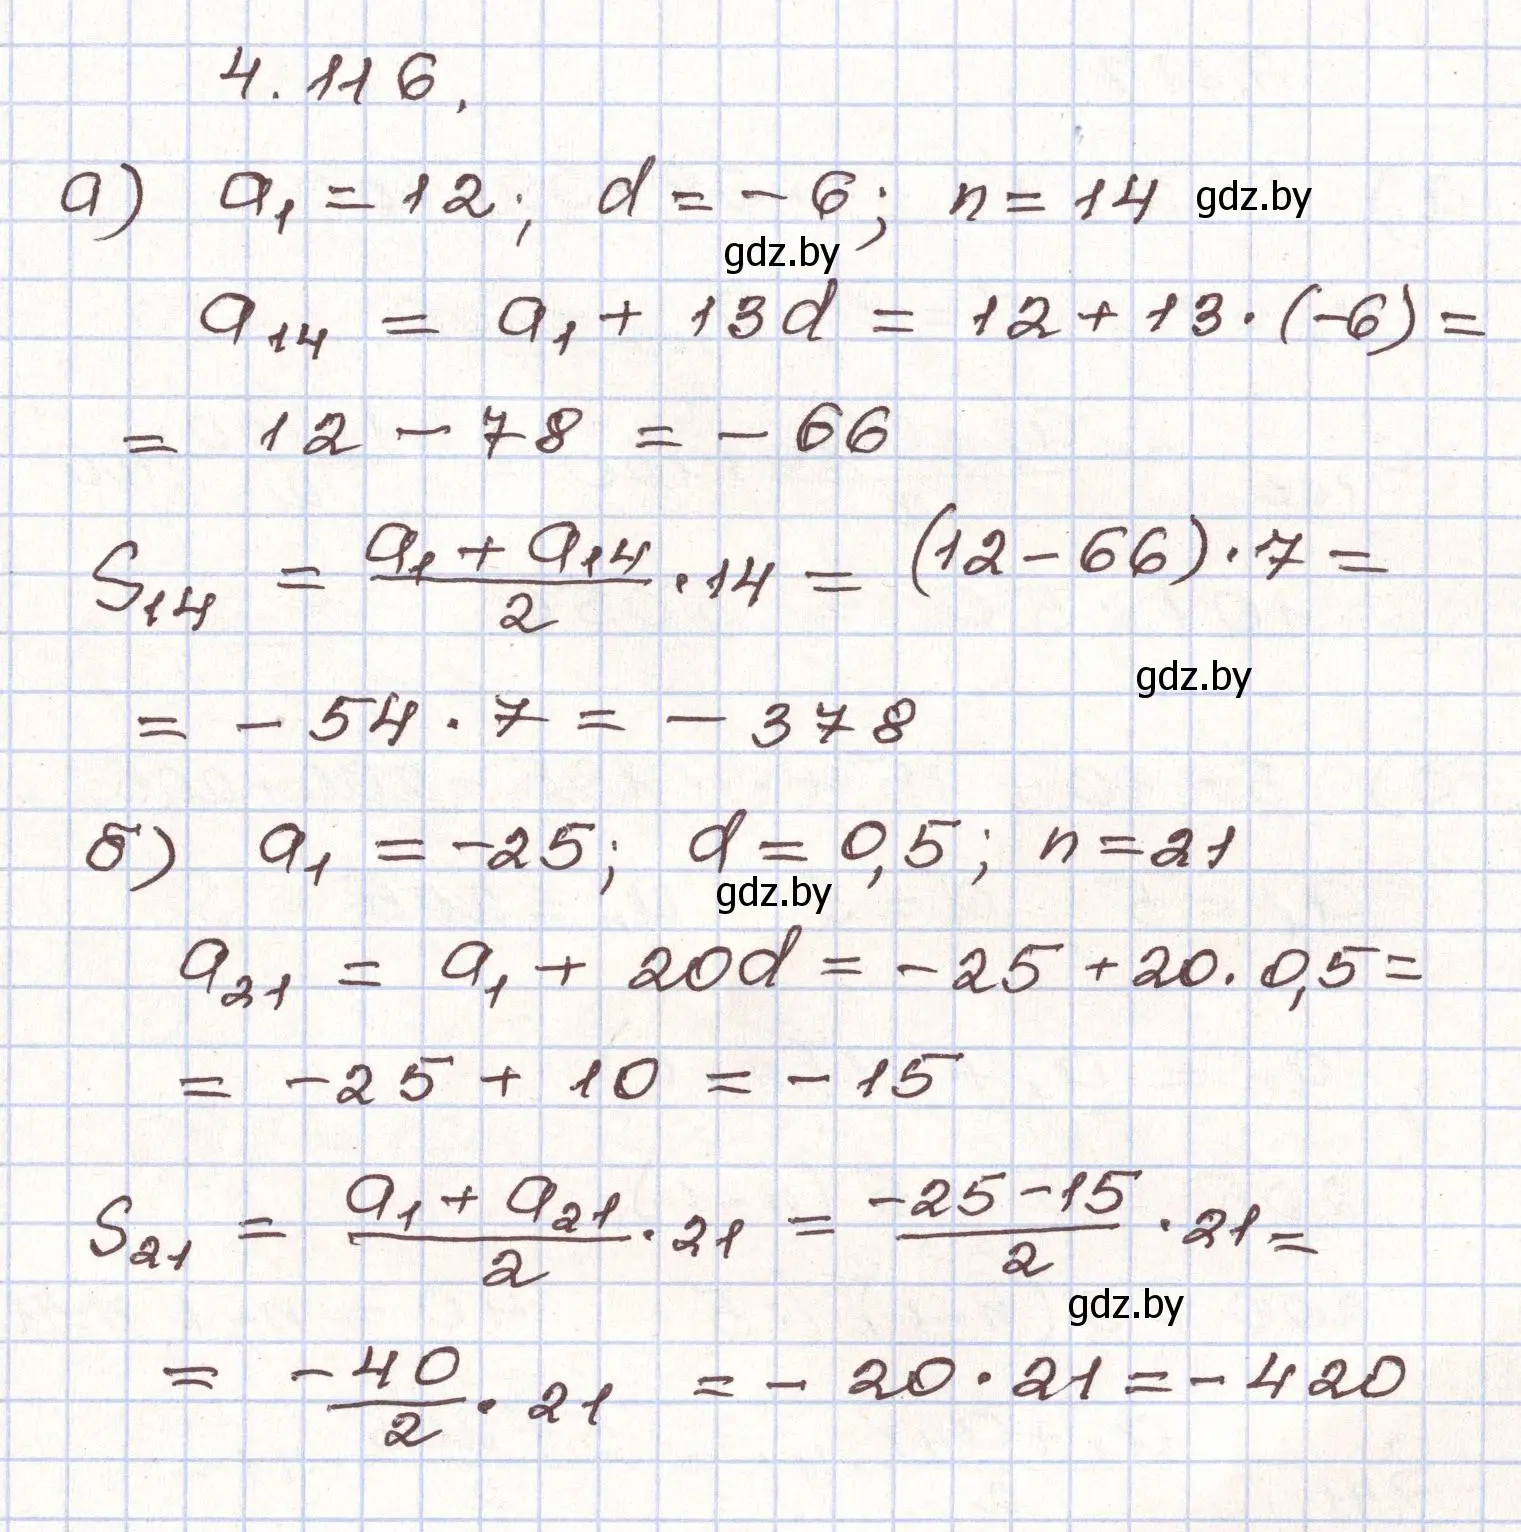 4.116.
а) a₁ = 12; d = -6; n = 14 gdz.by
gdz.by
a₁₄ = a₁ + 13d = 12 + 13 · (-6) =
= 12 - 78 = -66
S₁₄ = (a₁ + a₁₄)/2 · 14 = (12 - 66) · 7 =
gdz.by
= -54 · 7 = -378
б) a₁ = -25; d = 0,5; n = 21
gdz.by
a₂₁ = a₁ + 20d = -25 + 20 · 0,5 =
= -25 + 10 = -15
S₂₁ = (a₁ + a₂₁)/2 · 21 = (-25 - 15)/2 · 21 =
gdz.by
= -40/2 · 21 = -20 · 21 = -420